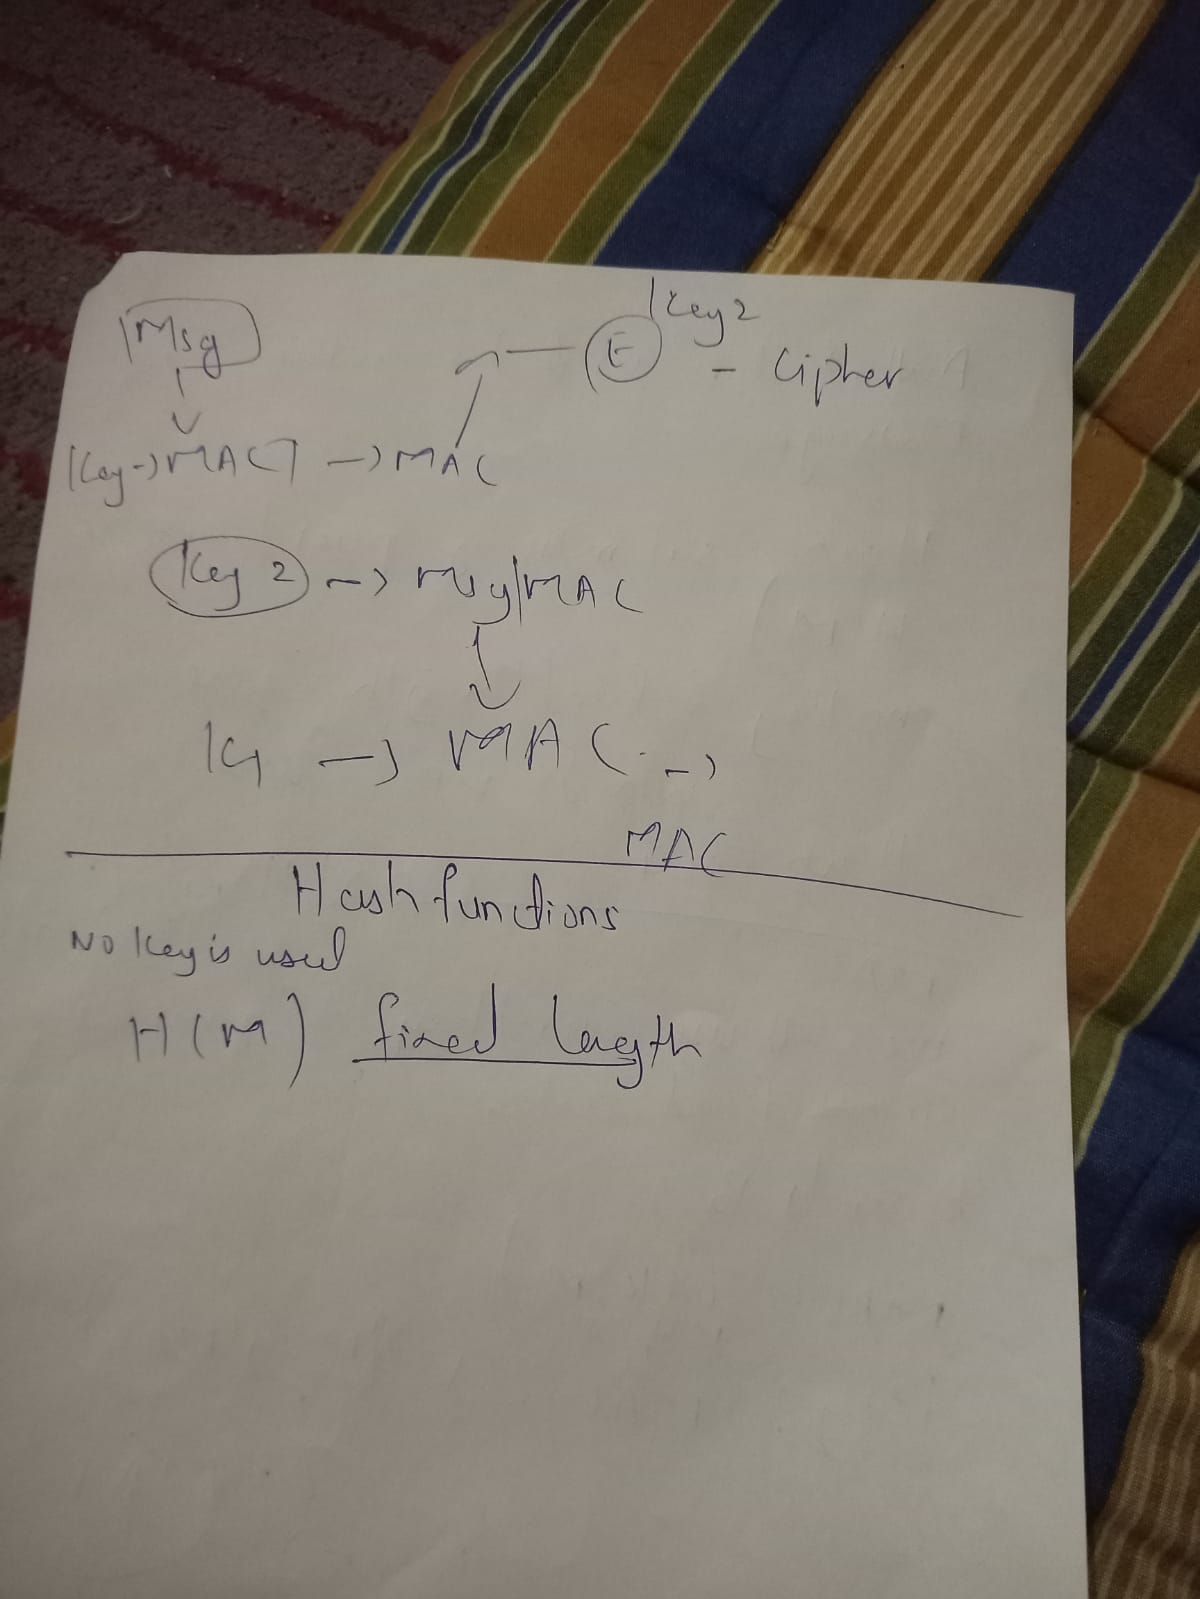 Msg
Key 2
E - Cipher
Key -> MAC -> MAC
Key 2 -> Msg|MAC
K1 -> MAC ->
MAC
Hash functions
No key is used
H(M) fixed length